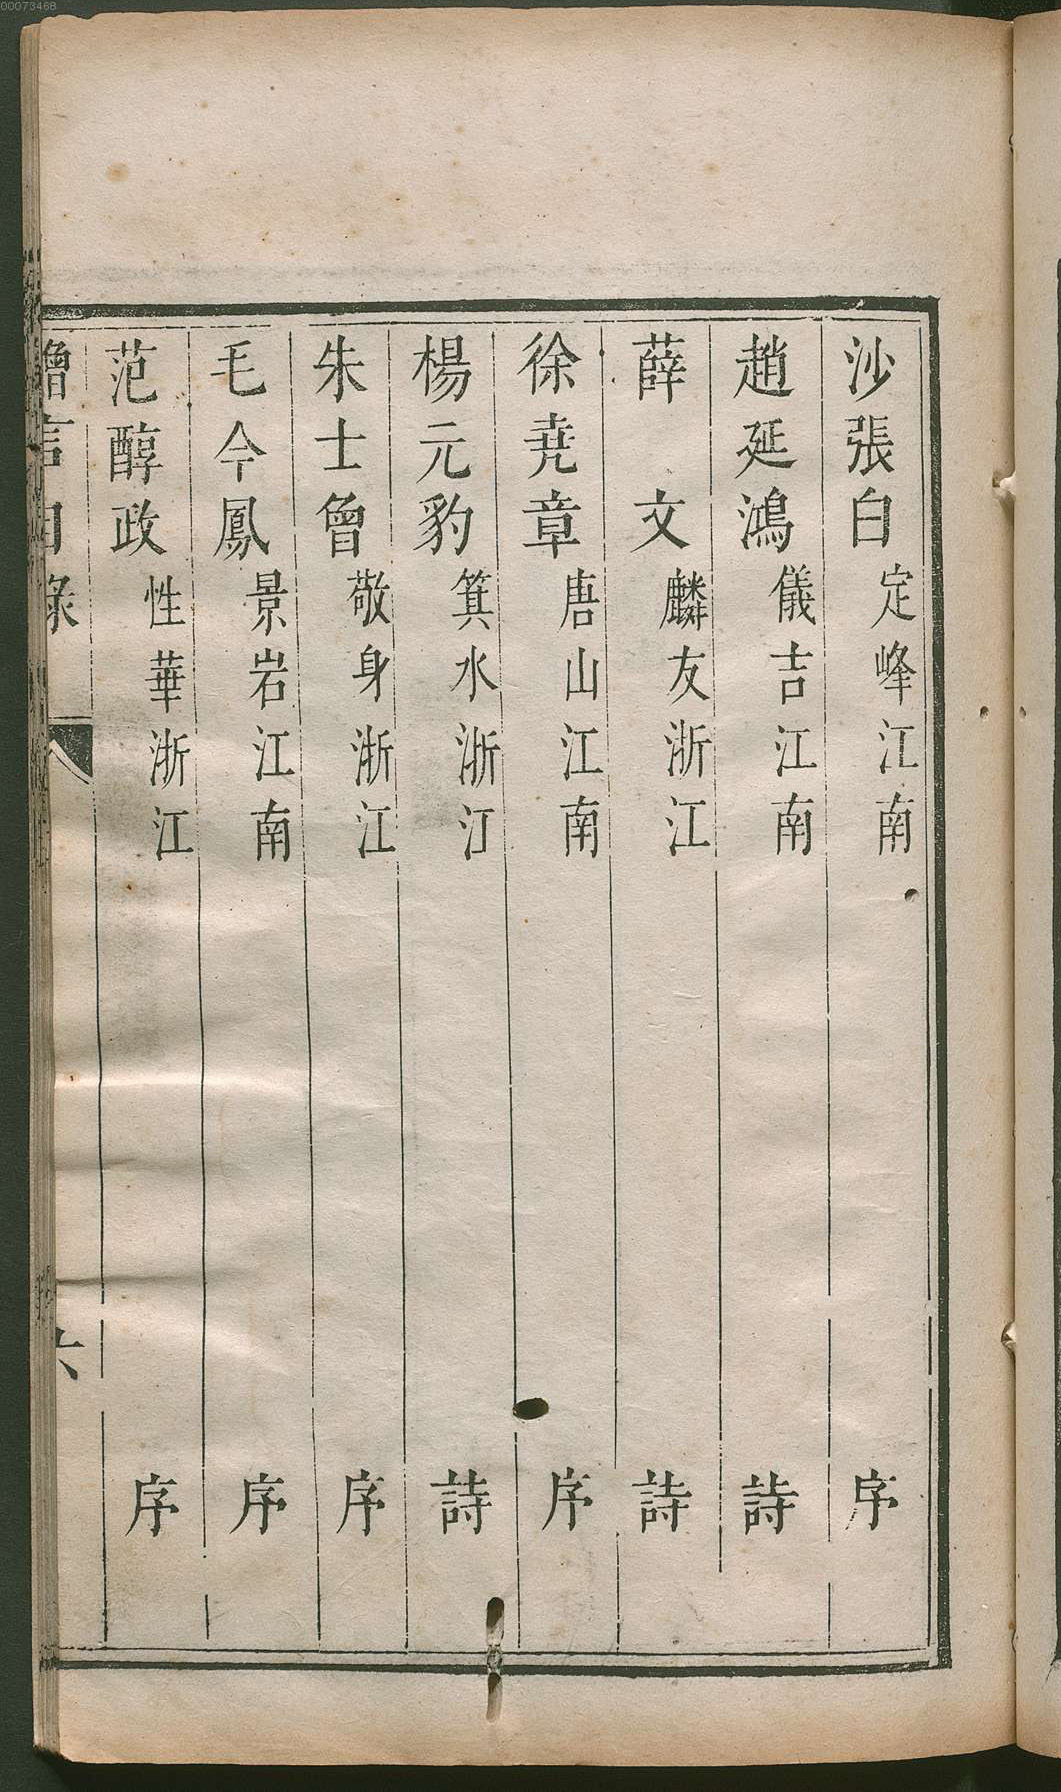 00073468
沙張白 定峰 江南 序
趙延鴻 儀吉 江南 詩
薛 文 麟友 浙江 詩
徐尭章 唐山 江南 序
楊元豹 箕水 浙江 詩
朱士曾 敬身 浙江 序
毛今鳳 景岩 江南 序
范醇政 性華 浙江 序
言目錄 六